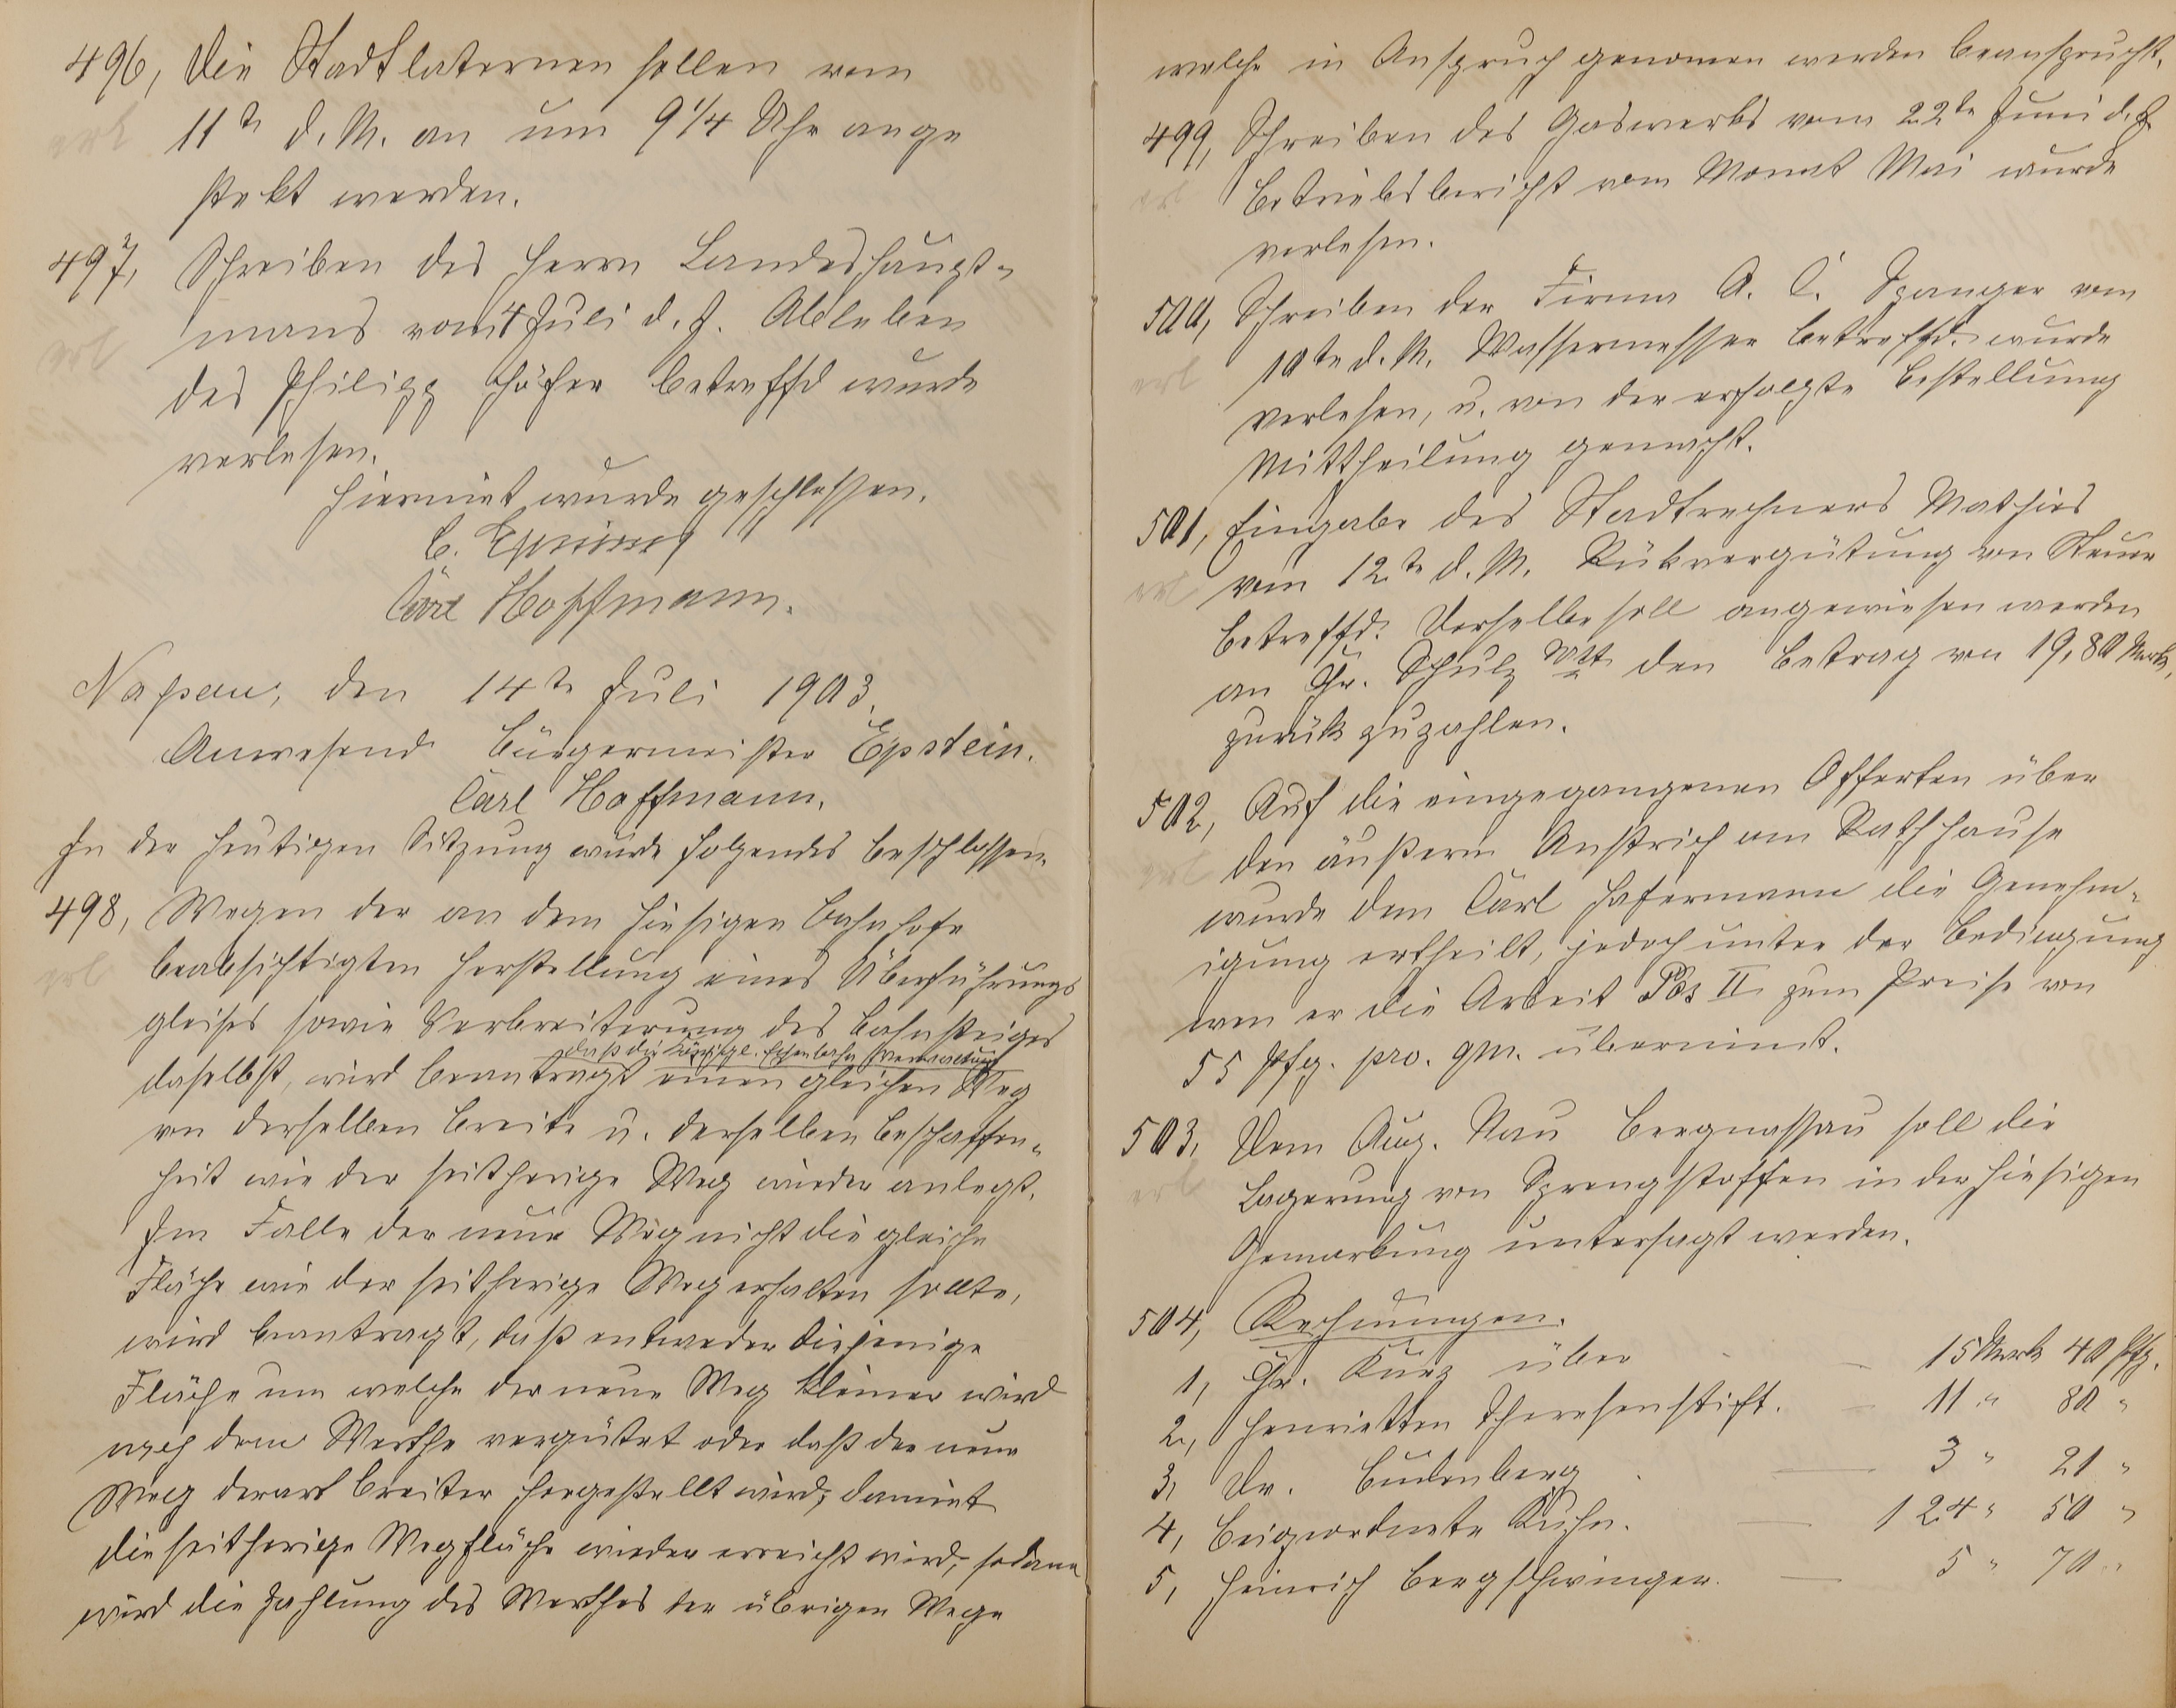 496, Die Stadtlaternen sollen vom
erl
11te d. M. an um 9 1/4 Uhr ange
stekt werden.
497, Schreiben des Herrn Landeshaupt-
mans vom 4 Juli d. J. Ableben
erl
des Philipp Höfer betreffd wurde
verlesen.
Hiermit wurde geschlossen.
Carl Hoffmann.
Nassau, den 14te Juli 1903.
Anwesend Bürgermeister Epstein.
Carl Hoffmann.
In der heutigen Sitzung wurde folgendes beschlossen.
498, Wegen der an dem hiesigen Bahnhofe
erl
beabsichtigten Herstellung eines Überführungs
gleises sowie Verbreiterung des Bahnsteiges
daß die Königl. Eisenbahn Verwaltung
daselbst, wird beantragt einen gleichen Weg
von derselben Breite u. derselben Beschaffen-
heit wie der seitherige Weg wieder anlegt.
Im Falle der neue Weg nicht die gleiche
Fläche wie der seitherige Weg erhalten sollte,
wird beantragt, daß entweder diejenige
Fläche um welche der neue Weg kleiner wird
nach dem Werthe vergütet oder daß der neue
Weg derart breiter hergestellt wird, damit
die seitherige Wegfläche wieder erreicht wird, sodann
wird die Zahlung des Werthes der übrigen Wege
welche in Anspruch genomen werden beansprucht.
499, Schreiben des Gaswerks vom 22te Juni d. J.
erl
Betriebsbericht vom Monat Mai wurde
verlesen.
500, Schreiben der Firma A. C. Spanger vom
10te d. M. Wassermesser betreffd. wurde
erl
verlesen, u. von der erfolgte Bestellung
Mittheilung gemacht.
501, Eingabe des Stadtrechners Mathies
vom 12te d. M. Rükvergütung von Steuer
erl
betreffd. Derselbe soll angewiesen werden
an Chr. Schulz Wtt den Betrag von 19,80 Mark,
zurük zuzahlen.
502, Auf die eingegangenen Offerten über
den äußern Anstrich am Rathhause
erl
wurde dem Carl Hafermann die Genehm-
igung ertheilt, jedoch unter der Bedingung
wen er die Arbeit Pos II zum Preise von
55 Pfg. pro. qm. übernimt.
503, Dem Aug. Nau Bergnassau soll die
erl
Lagerung von Sprengstoffen in der hiesigen
Gemarkung untersagt werden.
504, Rechnungen.
1, Chr. Kurz über - - 15 Mark 40 Pfg.
2, Henrietten Theresenstift. - 11 " 80 "
3, Dr. Budenberg . — 3 " 21 "
4, Beigeordnete Kuhn. — 124 " 50 "
5, Heinrich Bergschwinger. — 5 " 70 "